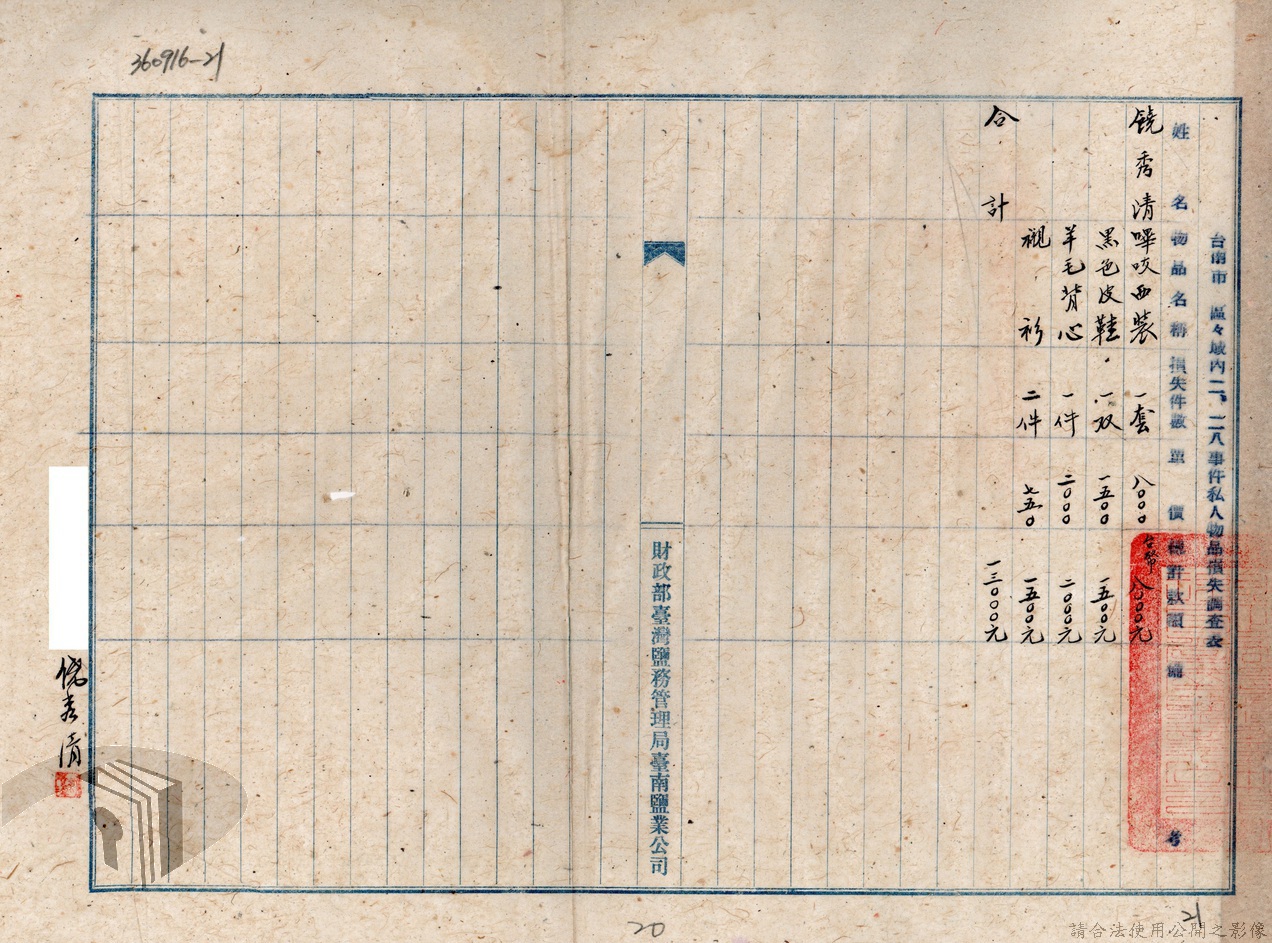 360916-21
台南市 區々域內二、二八事件私人物品損失調查表
姓名 物品名稱 損失件數 單價 總計款額 備考
饒秀清 嗶吱西裝 一套 八〇〇〇 台幣 八〇〇〇元
黑色皮鞋 一双 一五〇〇 一五〇〇元
羊毛背心 一件 二〇〇〇 二〇〇〇元
襯衫 二件 七五〇 一五〇〇元
合計 一三〇〇〇元
財政部臺灣鹽務管理局臺南鹽業公司
饒秀清
20
21
請合法使用公開之影像